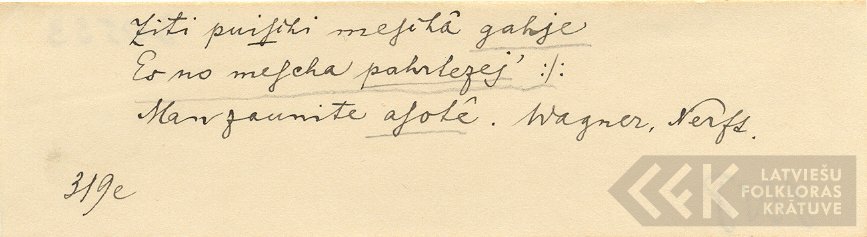 Ziti puiſihi meſihâ gahje
Es no meſcha pahrlezej' :/:
Man zaunite aſotê. Wagner, Nerft.
319e
LATVIEŠU
FOLKLORAS
KRĀTUVE